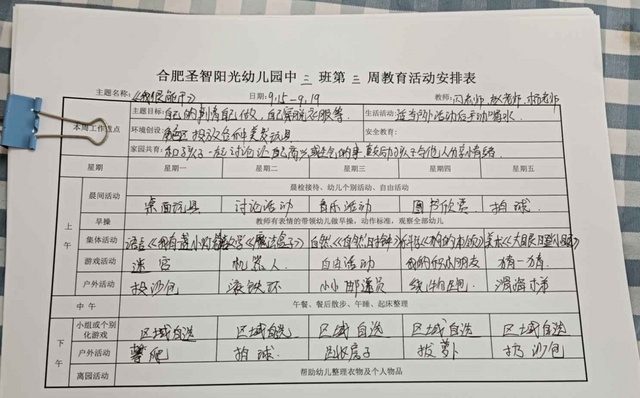 合肥圣智阳光幼儿园中三班第三周教育活动安排表
主题名称:《我很能干》 日期:9.15-9.19 教师: 闪老师, 赵老师, 杨老师
本周工作重点 主题目标: 自己的事情自己做 自己 衣服等 生活活动: 活动后主动喝水
环境创设: 投放各种 玩具 安全教育:
家园共育: 和孩子一起讨论让自己高兴或生气的事 孩子与他人分享情绪
星期 星期一 星期二 星期三 星期四 星期五
上午 晨间活动 晨检接待、幼儿个别活动、自由活动
桌面玩具 讨论活动 音乐活动 图书欣赏 拍球
早操 教师有表情的带领幼儿做早操,动作标准,观察全部幼儿
集体活动 语言《我有 小 》 《魔法盒子》 自然《自然 时钟》 《 的本领》 美术《大眼睛 》
游戏活动 迷宫 机器人 自由活动 我的好小朋友 猜一猜
户外活动 投沙包 滚铁环 小小邮递员 绕物 滑滑梯
中午 午餐、餐后散步、午睡、起床整理
下午 小组或个别化游戏 区域自选 区域自选 区域自选 区域自选 区域自选
户外活动 攀爬 拍球 房子 拔萝卜 扔沙包
离园活动 帮助幼儿整理衣物及个人物品